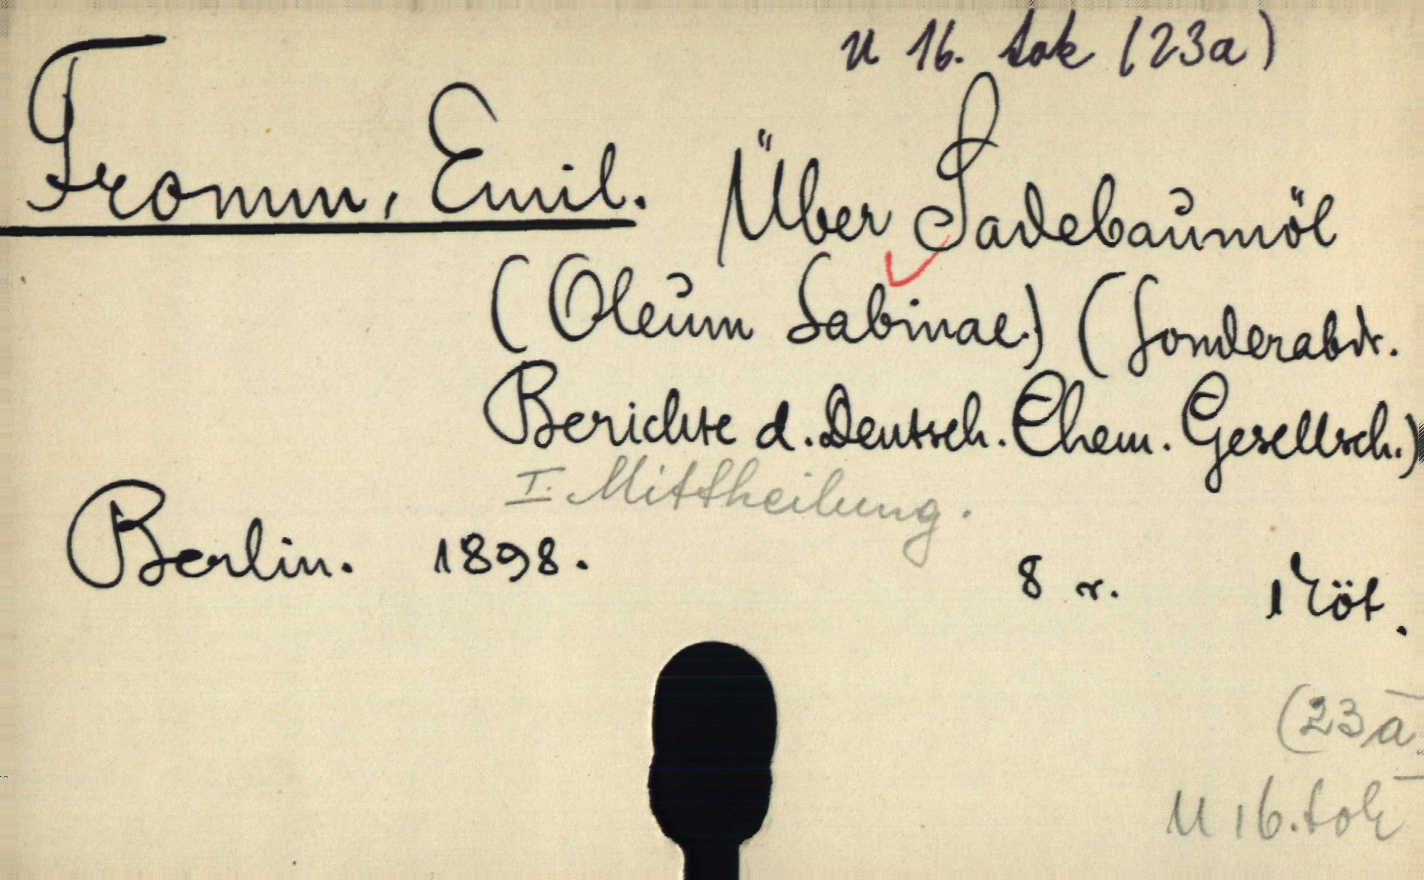 U 16. tok (23a)
Fromm, Emil. Über Sadebaumöl
(Oleum Sabinae.) (Sonderabdr.
Berichte d. Deutsch. Chem. Gesellsch.)
I. Mittheilung.
Berlin. 1898. 8 r. 1 köt.
(23a
U 16. tok